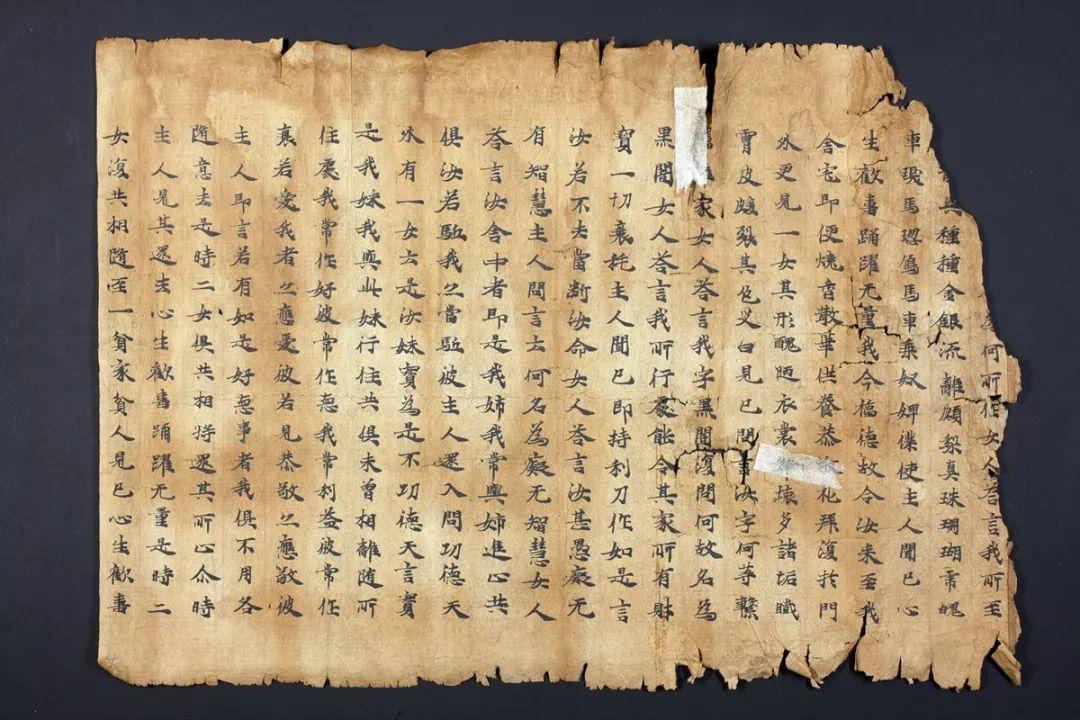 何所作女人答言我所至
與種種金銀流離頗梨真珠珊瑚虎魄
車𤦲馬瑙象馬車乘奴婢僕使主人聞已心
生歡喜踊躍无量我今福德故令汝来至我
舍宅即便燒香散華供養恭礼拜復於門
外更見一女其形醜陋衣裳壞多諸垢膩
膚皮皴裂其色艾白見已問言汝字何等繫
家女人答言我字黑闇復問何故名為
黑闇女人答言我所行處能令其家所有財
寶一切衰耗主人聞已即持利刀作如是言
汝若不去當斷汝命女人答言汝甚愚癡无
有智慧主人問言云何名為癡无智慧女人
答言汝舍中者即是我姉我常與姉進止共
俱汝若駈我亦當駈彼主人還入問功德天
外有一女云是汝妹實為是不功德天言實
是我妹我與此妹行住共俱未曾相離随所
住處我常作好彼常作惡我常利益彼常作
衰若愛我者亦應愛彼若見恭敬亦應敬彼
主人即言若有如是好惡事者我俱不用各
随意去是時二女俱共相將還其所止尒時
主人見其還去心生歡喜踊躍无量是時二
女復共相随至一貧家貧人見已心生歡喜